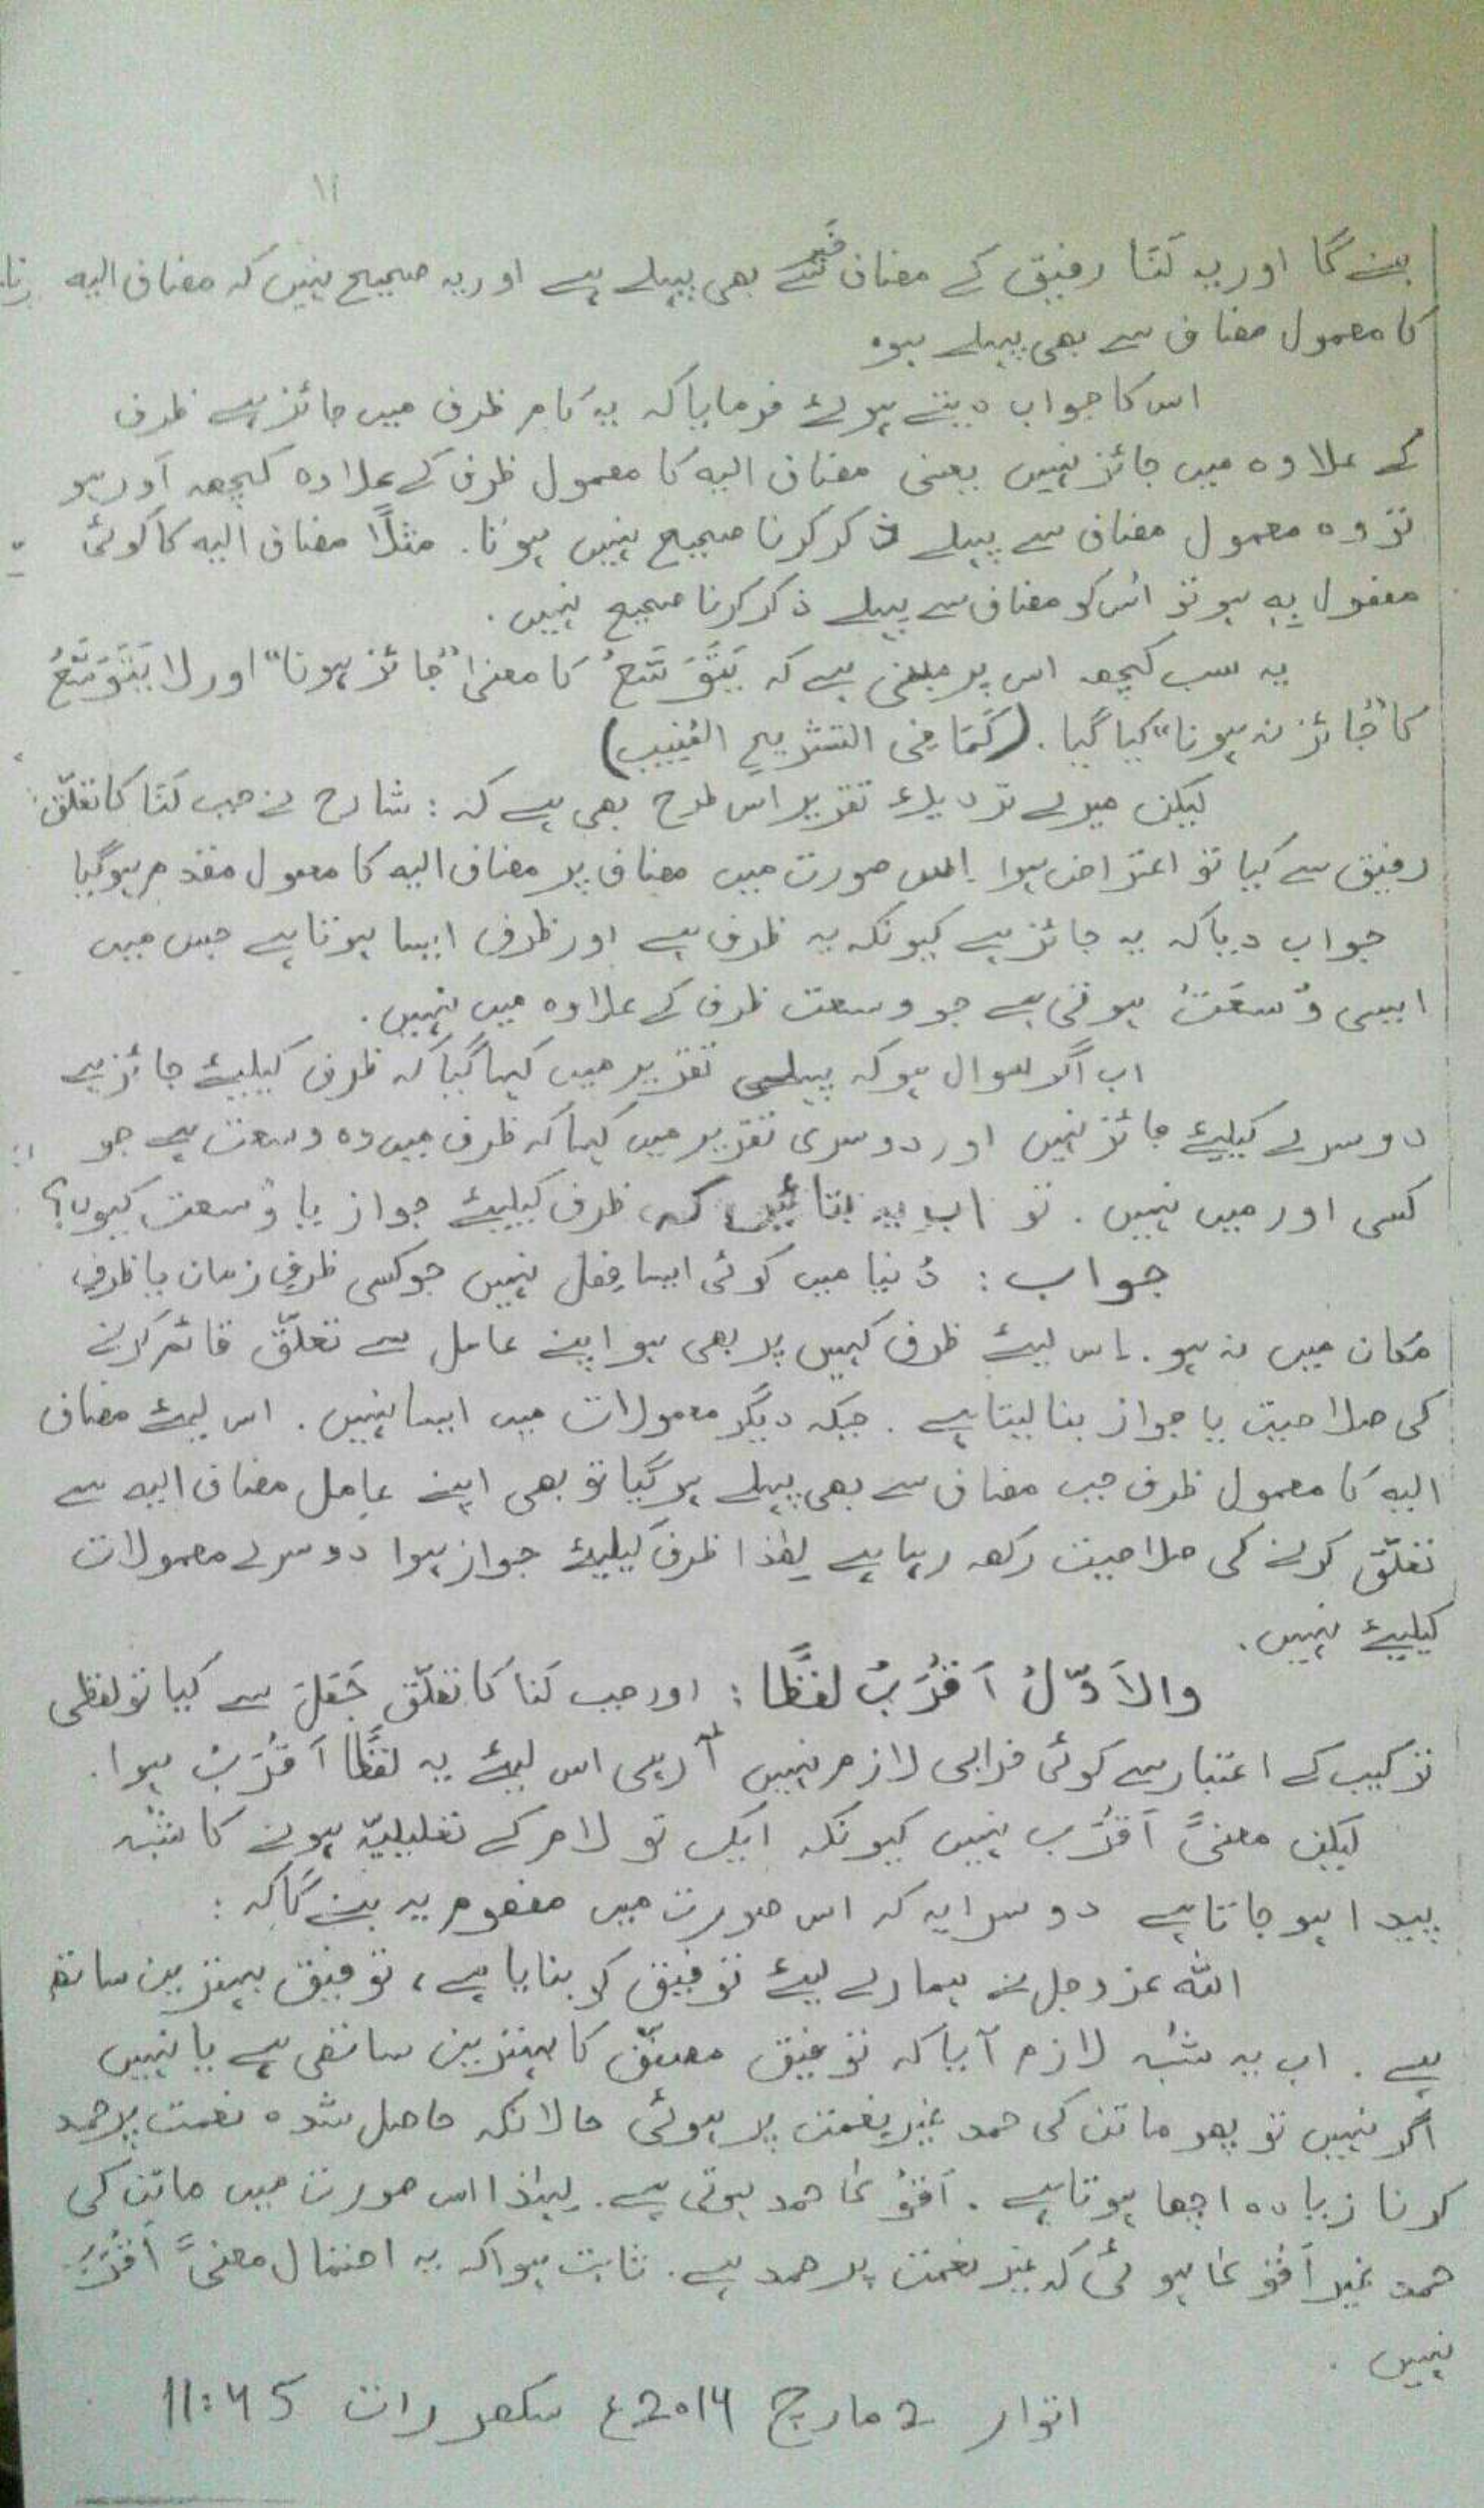 ۱۱
بنے گا اور یہ لَنَا رفیق کے مضاف خَیر سے بھی پہلے ہے اور یہ صحیح نہیں کہ مضاف الیہ
کا معمول مضاف سے بھی پہلے ہو۔
اس کا جواب دیتے ہوئے فرمایا کہ یہ کام ظرف میں جائز ہے ظرف
کے علاوہ میں جائز نہیں یعنی مضاف الیہ کا معمول ظرف کے علاوہ کچھ اَور ہو
تو وہ معمول مضاف سے پہلے ذکر کرنا صحیح نہیں ہوتا۔ مثلًا مضاف الیہ کا کوئی
مفعول بِہٖ ہو تو اُس کو مضاف سے پہلے ذکر کرنا صحیح نہیں۔
یہ سب کچھ اس پر مبنی ہے کہ یَتَوَسَّعُ کا معنیٰ "جائز ہونا" اور لا یَتَوَسَّعُ
کا "جائز نہ ہونا" کیا گیا۔ (کَمَا فِی التشریحِ المُنِیب)
لیکن میرے نزدیک تقریر اس طرح بھی ہے کہ : شارح نے جب لَنَا کا تعلّق
رفیق سے کیا تو اعتراض ہوا اس صورت میں مضاف پر مضاف الیہ کا معمول مقدم ہو گیا
جواب دیا کہ یہ جائز ہے کیونکہ یہ ظرف ہے اور ظرف ایسا ہوتا ہے جس میں
ایسی وُسعَتْ ہوتی ہے جو وسعت ظرف کے علاوہ میں نہیں۔
اب اگر سوال ہو کہ پہلی تقریر میں کہا گیا کہ ظرف کیلئے جائز ہے
دوسرے کیلئے جائز نہیں اور دوسری تقریر میں کہا کہ ظرف میں وہ وسعت ہے جو
کسی اور میں نہیں۔ تو اب یہ بتائیں کہ ظرف کیلئے جواز یا وُسعت کیوں؟
جواب : دُنیا میں کوئی ایسا فِعل نہیں جو کسی ظرفِ زمان یا ظرفِ
مکان میں نہ ہو۔ اس لیئے ظرف کہیں پر بھی ہو اپنے عامل سے تعلّق قائم کرنے
کی صلاحیت یا جواز بنا لیتا ہے۔ جبکہ دیگر معمولات میں ایسا نہیں۔ اس لیئے مضاف
الیہ کا معمول ظرف جب مضاف سے بھی پہلے ہو گیا تو بھی اپنے عامِل مضاف الیہ سے
تعلّق کرنے کی صلاحیت رکھ رہا ہے لِھٰذا ظرف کیلیئے جواز ہوا دوسرے معمولات
کیلیئے نہیں۔
والاَوّلُ اَقْرَبُ لفظًا : اور جب لَنَا کا تعلّق جَعَلَ سے کیا تو لفظی
ترکیب کے اعتبار سے کوئی خرابی لازم نہیں آ رہی اس لیئے یہ لفظًا اَقْرَبُ ہوا۔
لیکن معنیً اَقْرَب نہیں کیونکہ ایک تو لام کے تعلیلیّہ ہونے کا شُبہ
پیدا ہو جاتا ہے دوسرا یہ کہ اس صورت میں مفہوم یہ بنے گا کہ :
اللہ عزوجل نے ہمارے لیئے توفیق کو بنایا ہے، توفیق بہترین ساتھ
ہے۔ اب یہ شُبہ لازم آیا کہ توفیق مصنّف کا بہترین ساتھی ہے یا نہیں
اگر نہیں تو پھر ماتن کی حمد غیرِ نعمت پر ہوئی حالانکہ حاصل شدہ نعمت پر حمد
کرنا زیادہ اچھا ہوتا ہے۔ اَقْوٰی حمد ہوتی ہے۔ لِہٰذا اس صورت میں ماتن کی
حمد غیر اَقْوٰی ہوئی کہ غیرِ نعمت پر حمد ہے۔ ثابت ہوا کہ یہ احتمال معنیً اَقْرَبُ
نہیں۔
اتوار 2 مارچ 2014ء سکھر رات 11:45